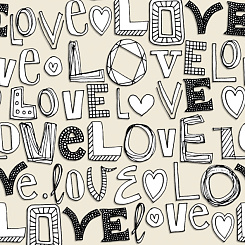 eLove LOVE
ve LOVELo
LOVE LOVE V
DVeLOVEL
e.love LOVE
LOVELoveL